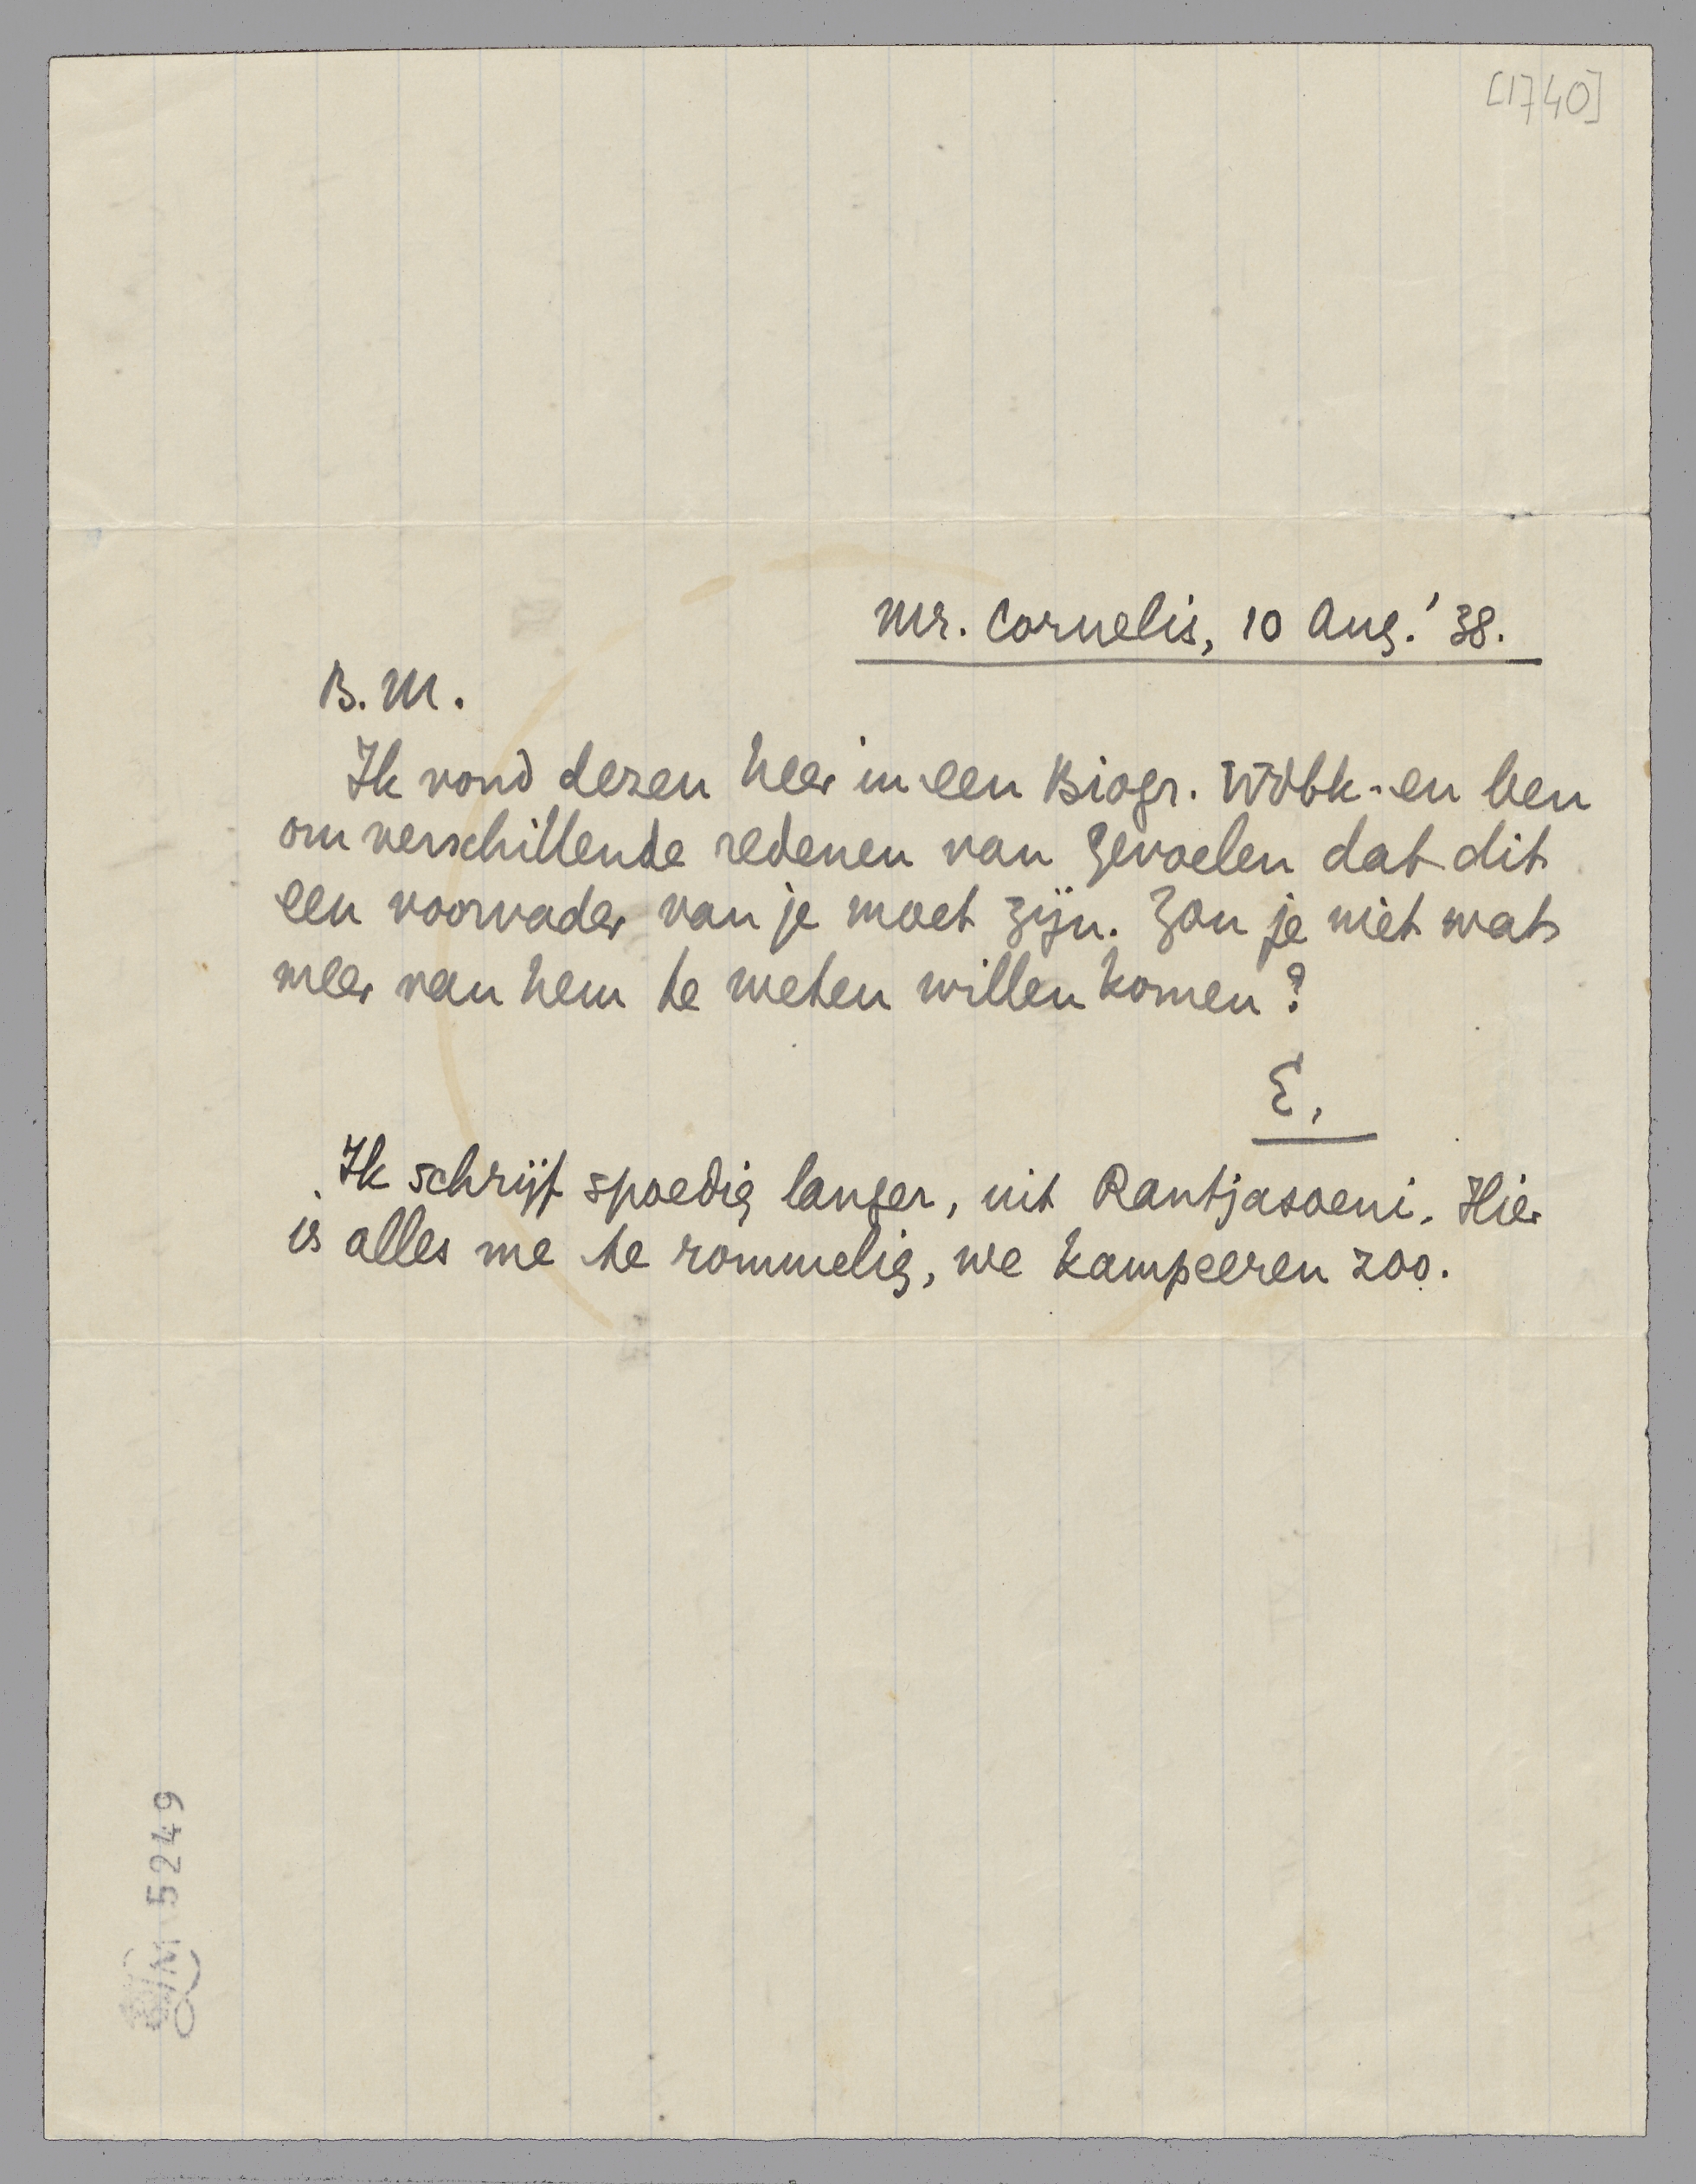 [1740]
Mr. Cornelis, 10 Aug.' 38.
B.M.
Ik vond dezen heer in een Biogr. Wdbk. en ben
om verschillende redenen van gevoelen dat dit
een voorvader van je moet zijn. Zou je niet wat
meer van hem te weten willen komen?
E.
Ik schrijf spoedig langer, uit Rantjasoeni. Hier
is alles me te rommelig, we kampeeren zoo.
5249